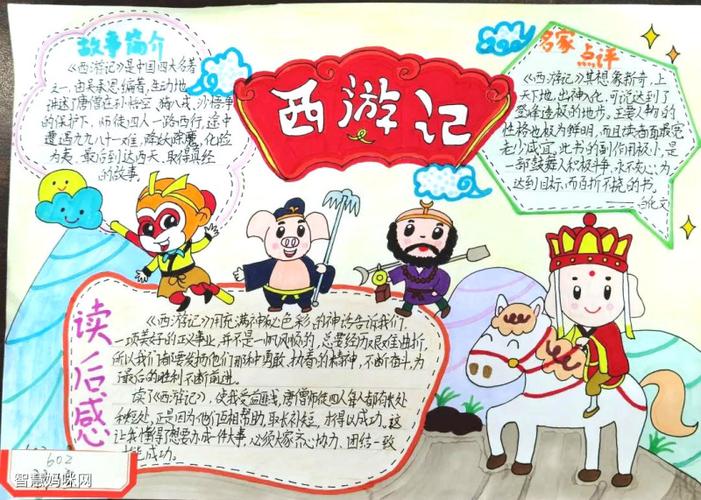 西游记
故事简介
《西游记》是中国四大名著
之一,由吴承恩编著,生动地
讲述了唐僧在孙悟空、猪八戒、沙悟净
的保护下,师徒四人一路西行,途中
遭遇九九八十一难,降妖除魔,化险
为夷,最后到达西天,取得真经
的故事。
名家点评
《西游记》其想象新奇,上
天下地,出神入化,可说达到了
登峰造极的地步。主要人物的
性格也极为鲜明,而且读者面最宽
老少咸宜。此书的副作用极小,是
一部鼓舞人积极斗争,永不灰心,为
达到目标,而百折不挠的书。
——白化文
读后感
《西游记》用充满神秘色彩的神话告诉我们,
一项美好的正义事业,并不是一帆风顺的,总要经历艰难曲折,
所以我们都要发扬他们那种勇敢、执着的精神,不断奋斗,为
最后的胜利不断前进。
读了《西游记》,使我受益匪浅,唐僧师徒四人每人都有长处
和短处,正是因为他们互相帮助,取长补短,才得以成功。这
让我懂得了想要办成一件大事,必须大家齐心协力、团结一致
才能成功。
602
智慧妈咪网